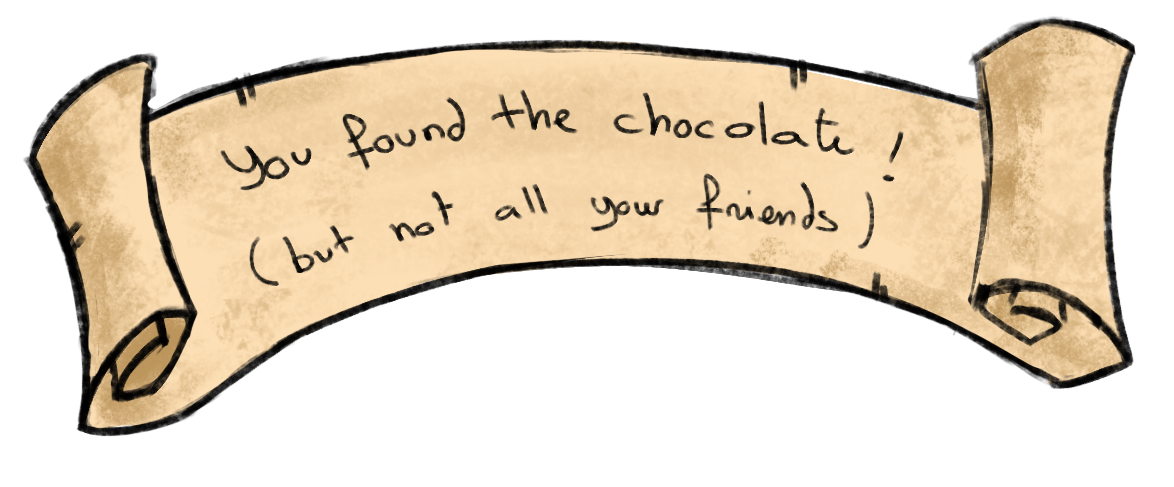 You found the chocolate !
(but not all your friends)